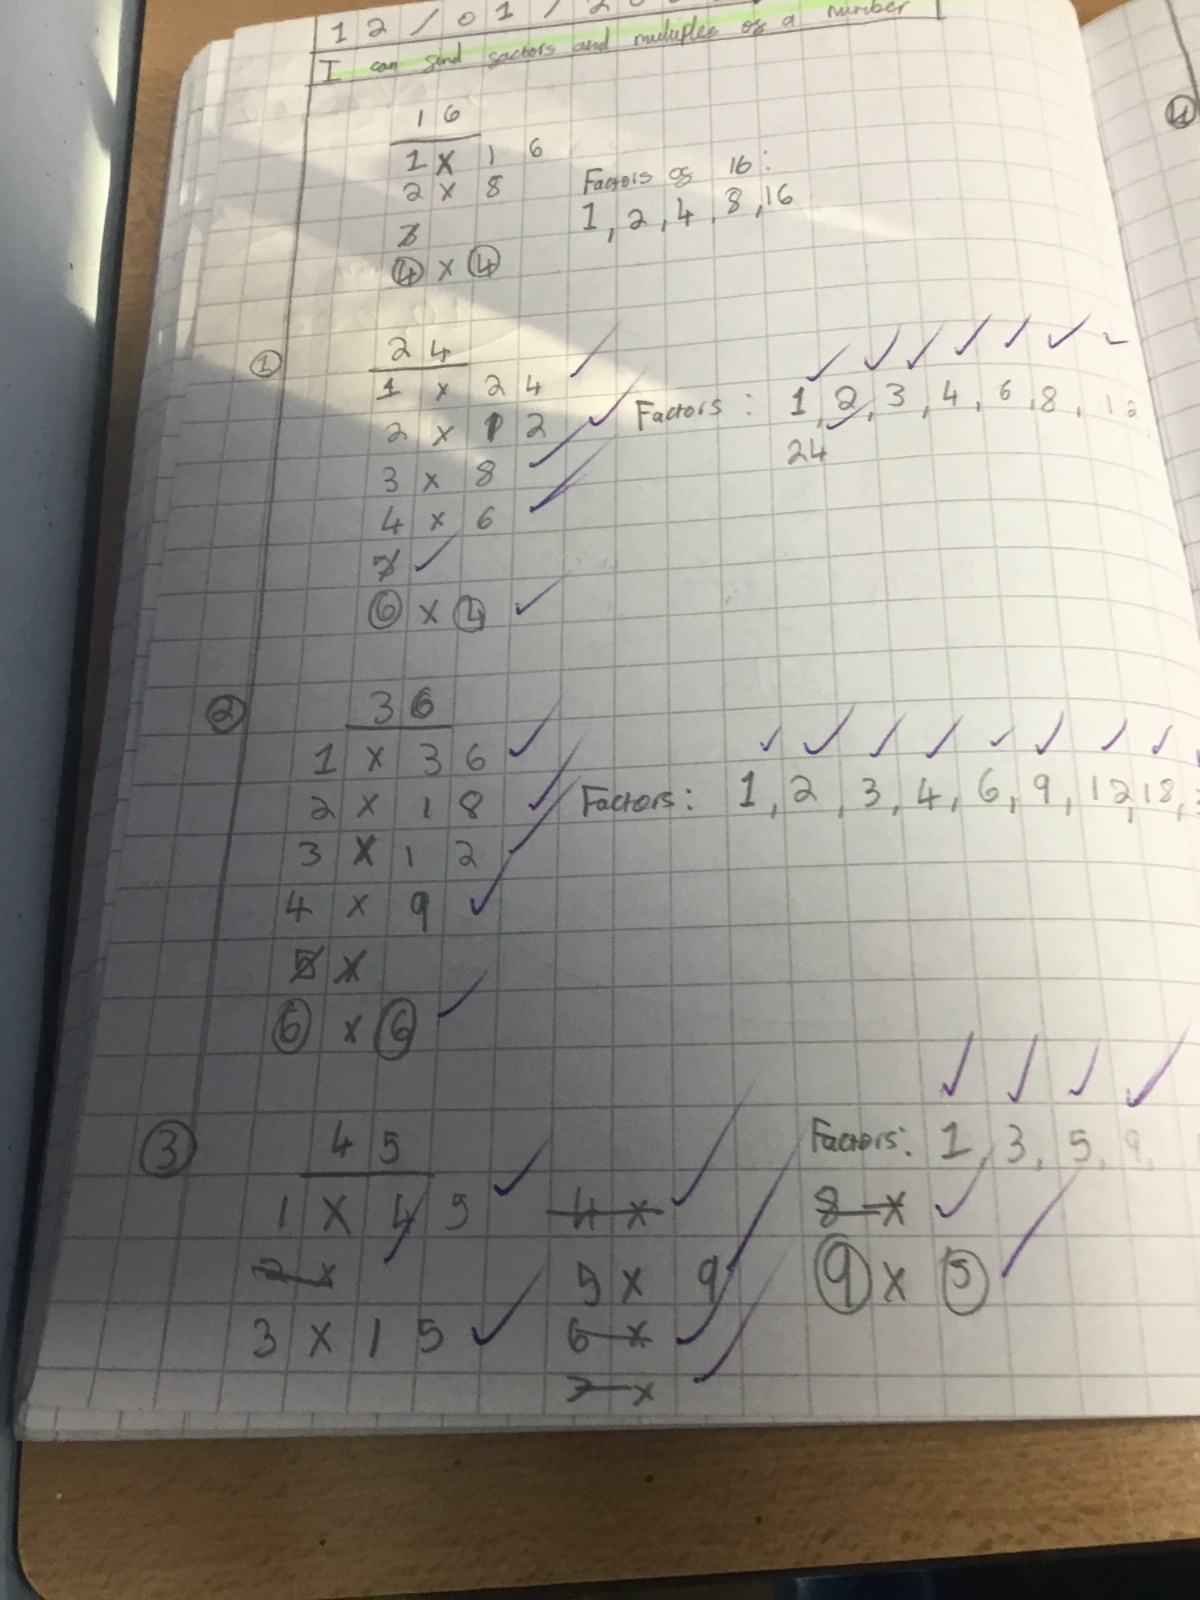 12/01/2
I can find factors and multiples of a number
16
1 x 16
2 x 8
3
4 x 4
Factors of 16:
1, 2, 4, 8, 16
1
24
1 x 24
2 x 12
3 x 8
4 x 6
6 x 4
Factors: 1, 2, 3, 4, 6, 8, 12
24
2
36
1 x 36
2 x 18
3 x 12
4 x 9
5 x
6 x 6
Factors: 1, 2, 3, 4, 6, 9, 12, 18,
3
45
1 x 45
2 x
3 x 15
4 x
5 x 9
6 x
7 x
Factors: 1, 3, 5, 9,
8 x
9 x 5
4